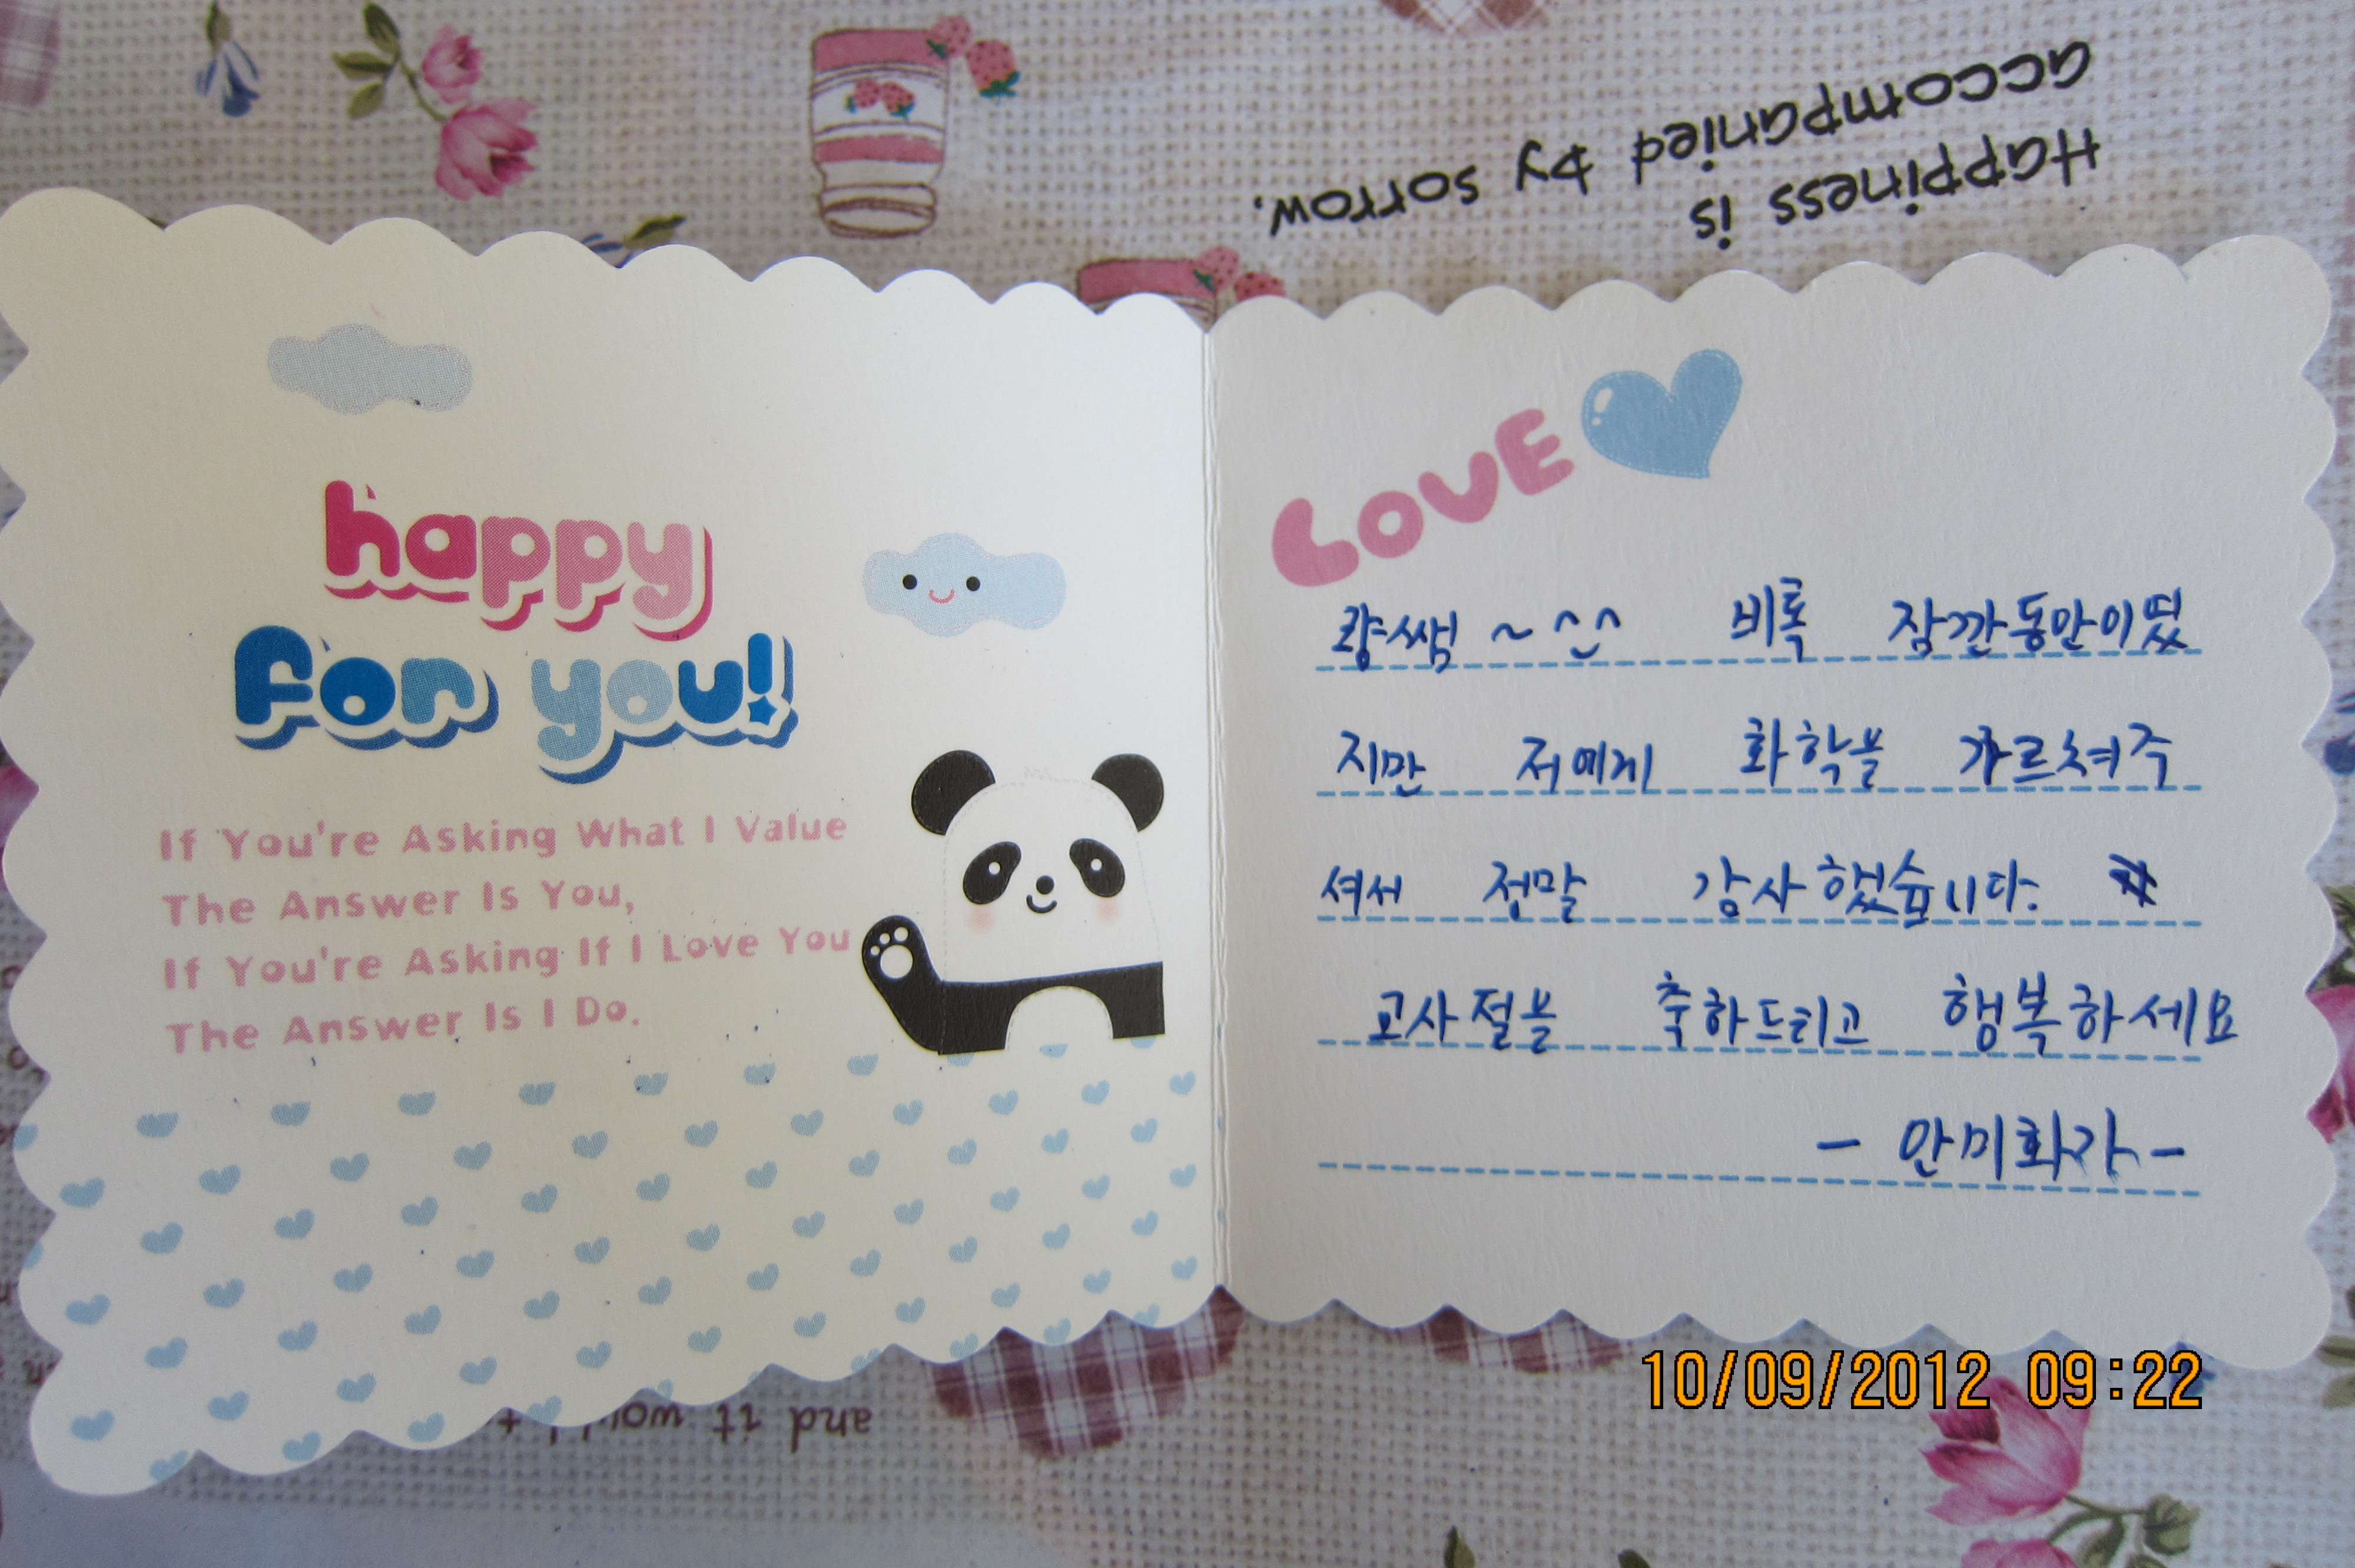 accompanied
Happiness is
by sorrow.
happy
for you!
If You're Asking What I Value
The Answer Is You,
If You're Asking If I Love You
The Answer Is I Do.
LOVE
쌤 ~ ^^ 비록 잠깐동안이였
지만 저에게 화학을 가르쳐주
셔서 정말 감사했습니다.
교사절을 축하드리고 행복하세요
- 안미화가 -
and it
10/09/2012 09:22